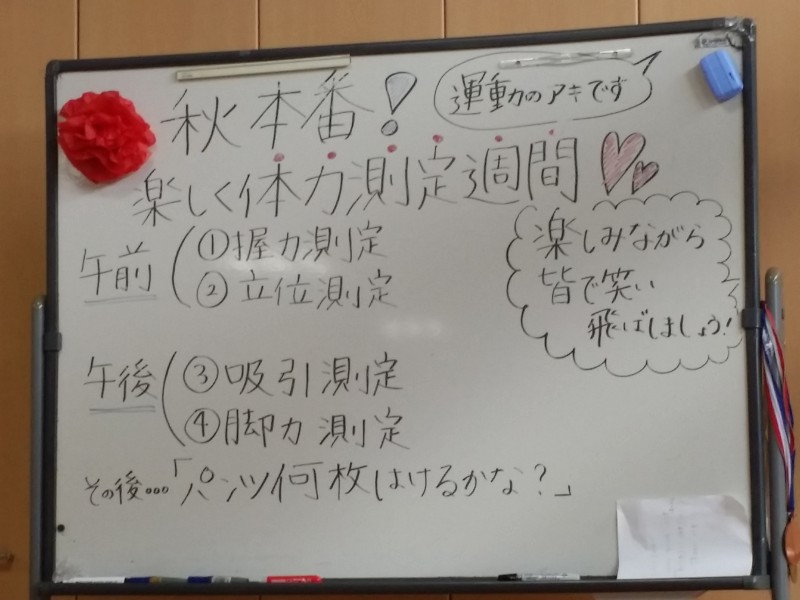 秋本番!
運動のアキです
楽しく体力測定週間
午前
①握力測定
②立位測定
楽しみながら
皆で笑い
飛ばしましょう!
午後
③吸引測定
④脚力測定
その後…「パンツ何枚はけるかな?」